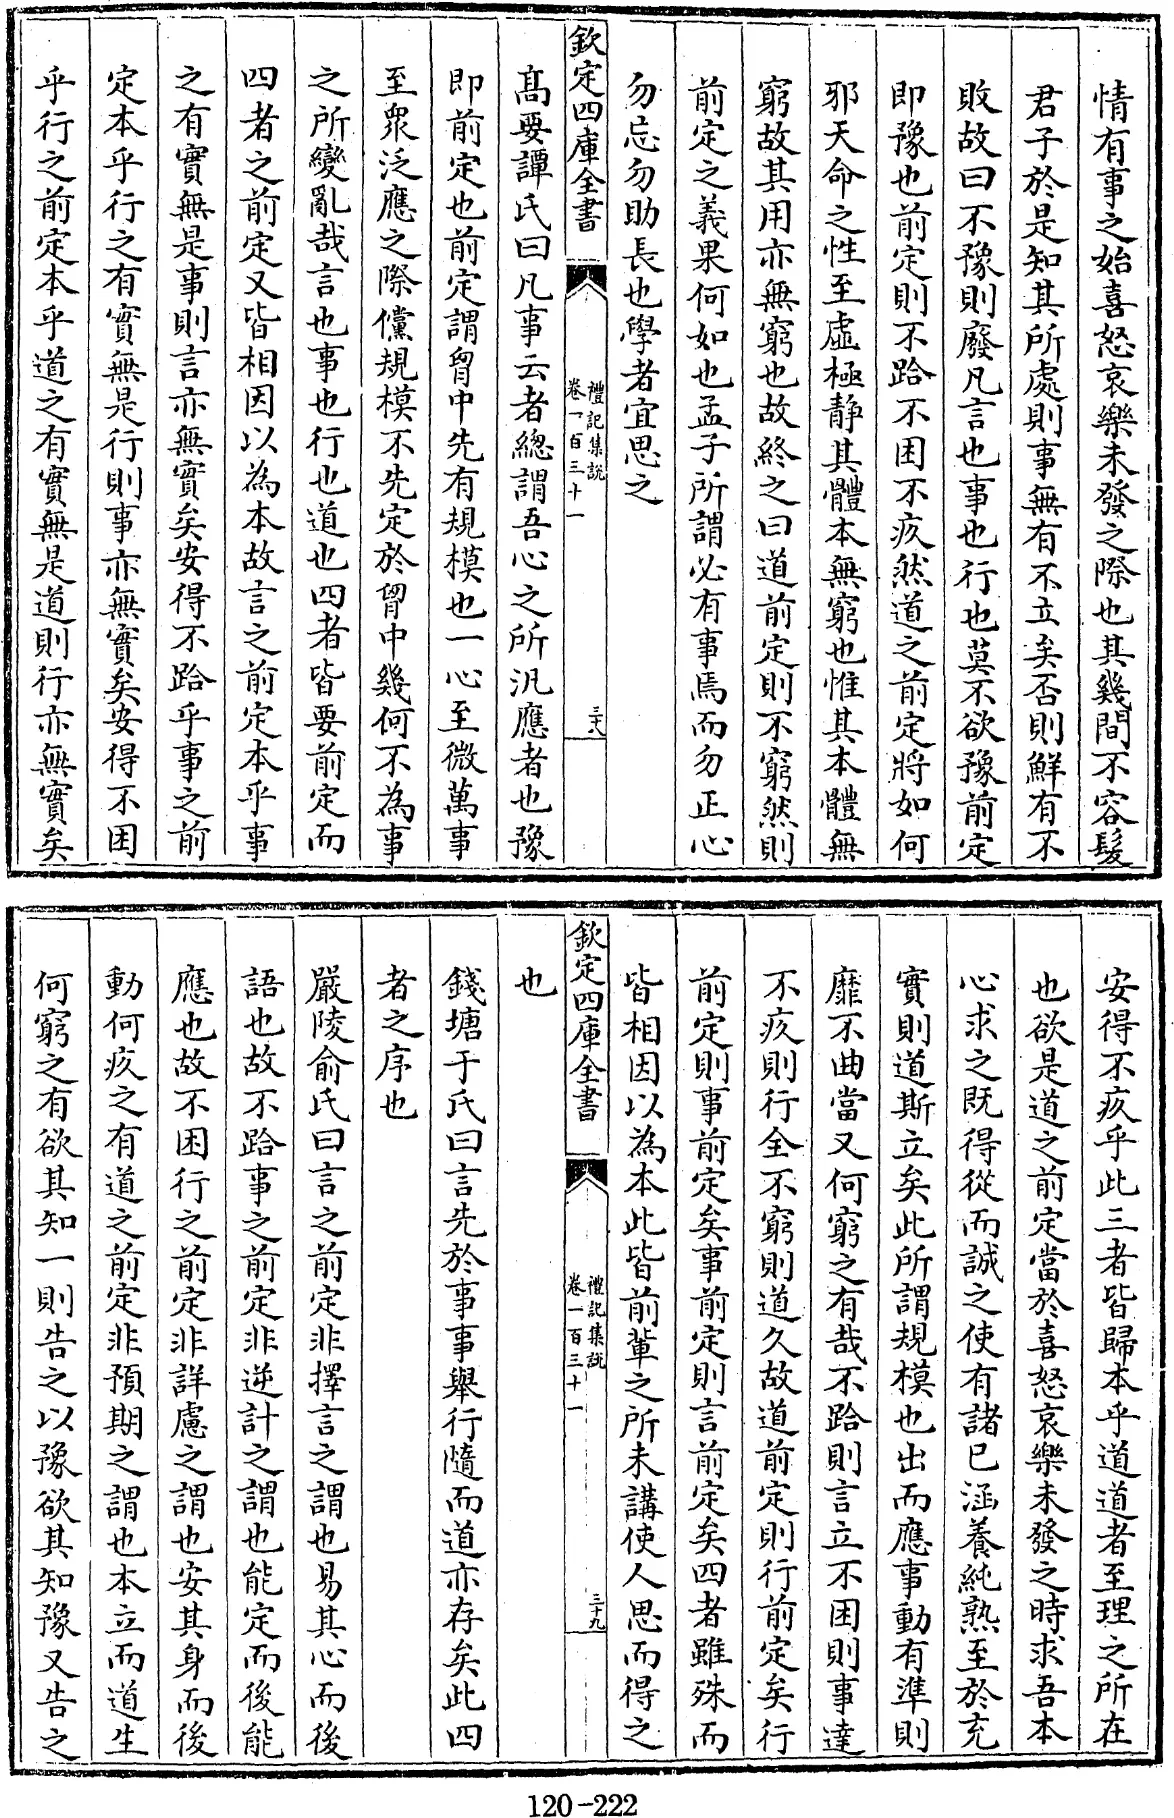 情有事之始喜怒哀樂未發之際也其幾間不容髮
君子於是知其所處則事無有不立矣否則鮮有不
敗故曰不豫則廢凡言也事也行也莫不欲豫前定
即豫也前定則不跲不困不疚然道之前定將如何
邪天命之性至虛極静其體本無窮也惟其本體無
窮故其用亦無窮也故終之曰道前定則不窮然則
前定之義果何如也孟子所謂必有事焉而勿正心
勿忘勿助長也學者宜思之
欽定四庫全書
禮記集説
卷一百三十一
三十八
髙要譚氏曰凡事云者總謂吾心之所汎應者也豫
即前定也前定謂胷中先有規模也一心至微萬事
至衆泛應之際儻規模不先定於胷中幾何不為事
之所變亂哉言也事也行也道也四者皆要前定而
四者之前定又皆相因以為本故言之前定本乎事
之有實無是事則言亦無實矣安得不跲乎事之前
定本乎行之有實無是行則事亦無實矣安得不困
乎行之前定本乎道之有實無是道則行亦無實矣
安得不疚乎此三者皆歸本乎道道者至理之所在
也欲是道之前定當於喜怒哀樂未發之時求吾本
心求之既得從而誠之使有諸已涵養純熟至於充
實則道斯立矣此所謂規模也出而應事動有準則
靡不曲當又何窮之有哉不跲則言立不困則事達
不疚則行全不窮則道久故道前定則行前定矣行
前定則事前定矣事前定則言前定矣四者雖殊而
皆相因以為本此皆前輩之所未講使人思而得之
欽定四庫全書
禮記集説
卷一百三十一
三十九
也
錢塘于氏曰言先於事事舉行隨而道亦存矣此四
者之序也
嚴陵俞氏曰言之前定非擇言之謂也易其心而後
語也故不跲事之前定非逆計之謂也能定而後能
應也故不困行之前定非詳慮之謂也安其身而後
動何疚之有道之前定非預期之謂也本立而道生
何窮之有欲其知一則告之以豫欲其知豫又告之
120-222